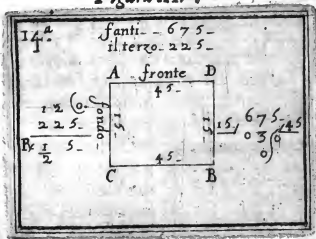 14.ª
fanti - - 675 -
il terzo - 225 -
A fronte D
45 -
1 2 (0 -
2 2 5 -
R/ 1/2 5 -
fondo -
15 -
15 -
15/ 675 /45
030
0
45 -
C B